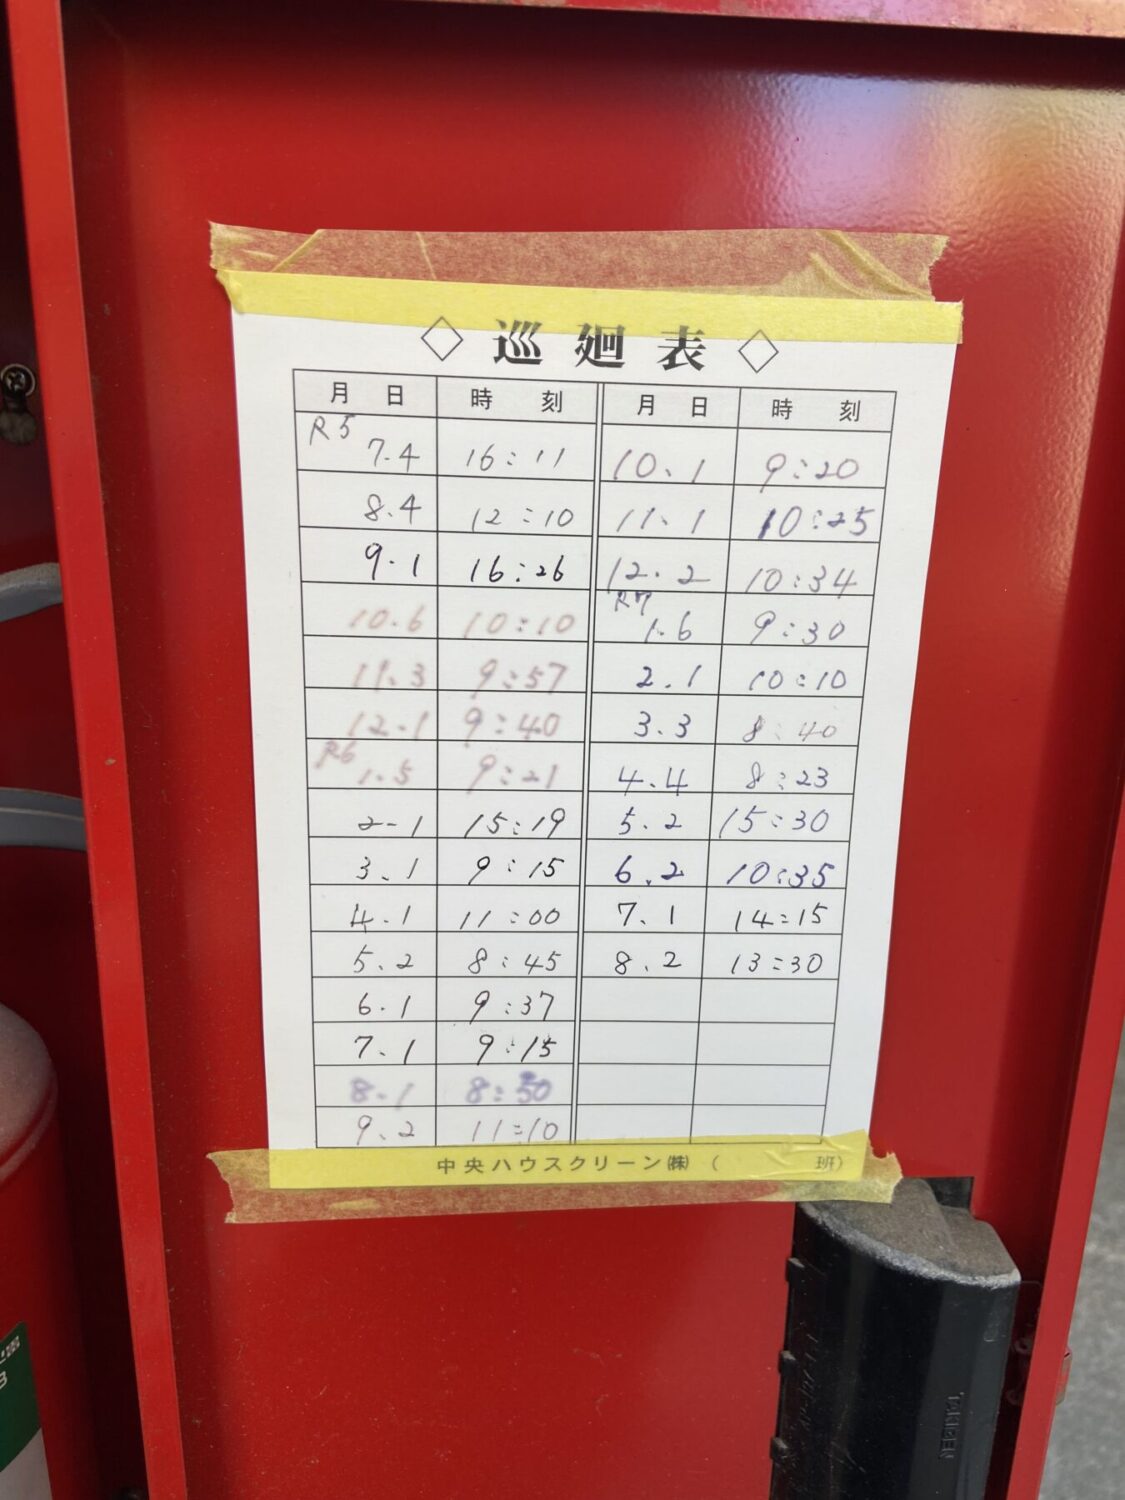 ◇ 巡廻表 ◇
月 日 時 刻 月 日 時 刻
R5 7.4 16:11 10.1 9:20
8.4 12:10 11.1 10:25
9.1 16:26 12.2 10:34
10.6 10:10 R7 1.6 9:30
11.3 9:57 2.1 10:10
12.1 9:40 3.3 8:40
R6 1.5 9:21 4.4 8:23
2-1 15:19 5.2 15:30
3.1 9:15 6.2 10:35
4.1 11:00 7.1 14:15
5.2 8:45 8.2 13:30
6.1 9:37
7.1 9:15
8.1 8:50
9.2 11:10
中央ハウスクリーン㈱ ( 班)